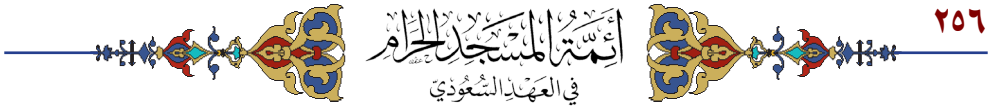 ٢٥٦
أَئِمَّةُ المَسْجِدِ الحَرَامِ
فِي العَهْدِ السُّعُودِيّ